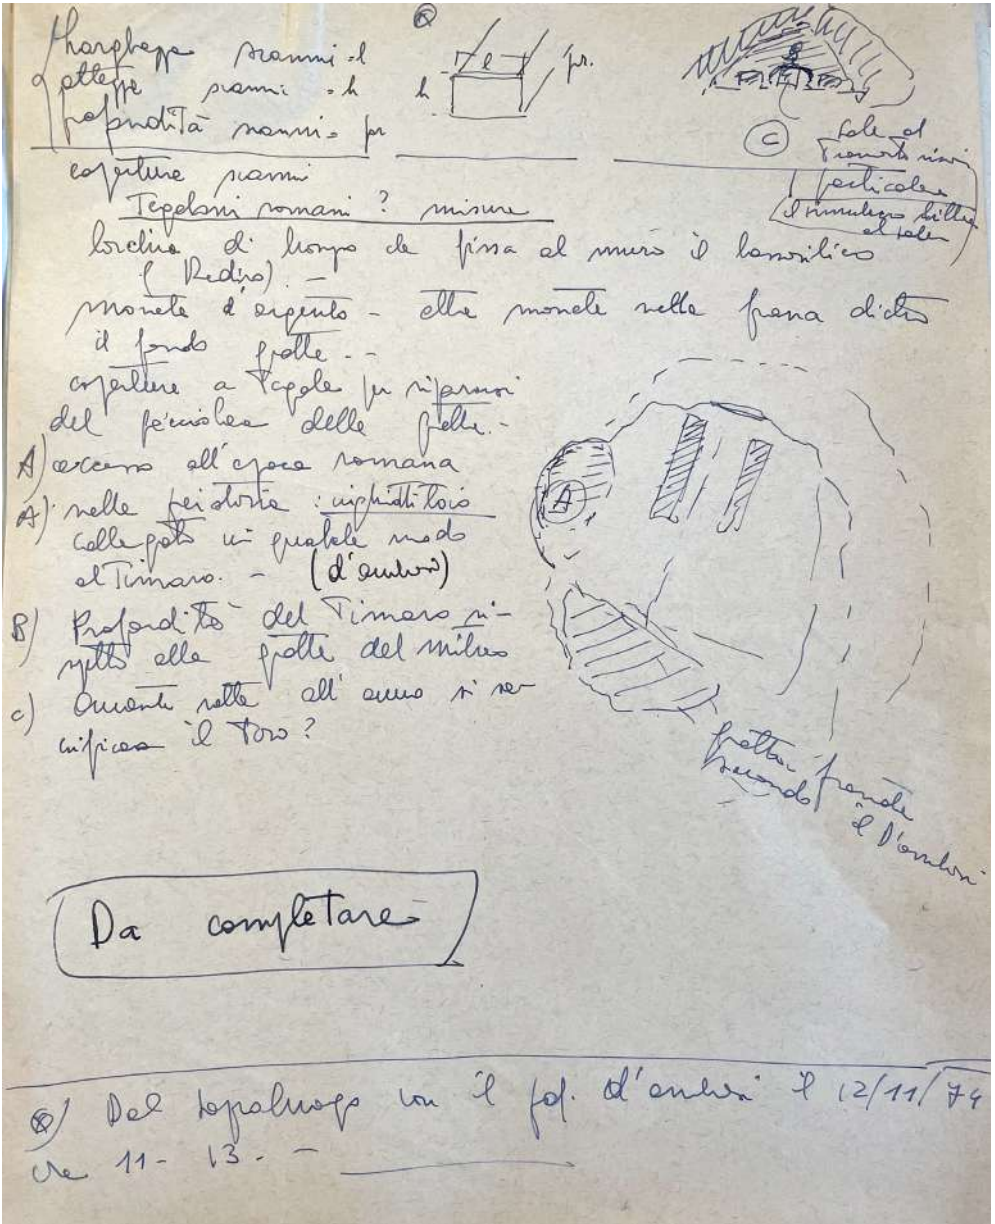 Larghezza scanni = l
altezze scanni = h
profondità scanni = pr
l
h
pr.
C
Sole al
Tramonto
particolare
il simulacro
al sole
coperture scanni
Tegoloni romani ? misure
di bronzo da fissa al muro il bassorilievo
(Redivo). -
monete d'argento - altre monete nella frana dietro
il fondo grotte. -
coperture a Tegole per ripararsi
del della grotta. -
A) accesso all'epoca romana
A)' nella preistoria : inghiottitoio
collegato in qualche modo
al Timavo. - (d'ambrosi)
B) Profondità del Timavo ri-
spetto alla grotta del mitreo
c) Quante volte all'anno si sa-
crificava il Toro ?
A
grotta grande
secondo il D'ambrosi
Da completare
Dal sopraluogo con il prof. d'ambrosi il 12/11/74
ore 11 - 13. -